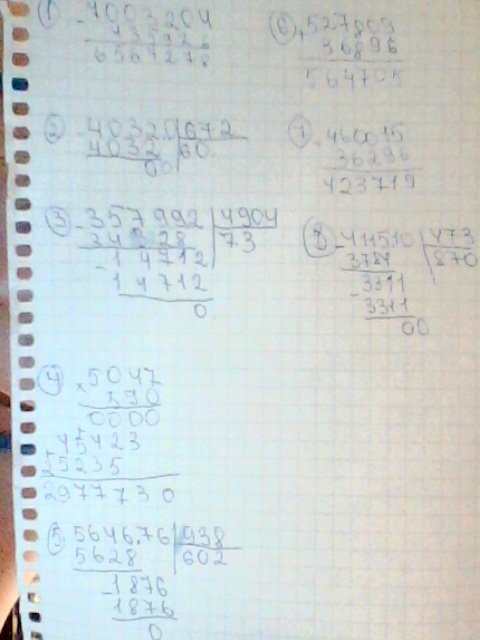 ① -7003204
435926
6567278
② -40320 672
4032 60
00
③ -357992 4904
34328 73
-14712
14712
0
④ ×5047
590
0000
+45423
25235
2977730
⑤ 564676 938
5628 602
-1876
1876
0
⑥ +527809
36896
564705
⑦ -460015
36296
423719
⑧ -411510 473
3784 870
-3311
3311
00